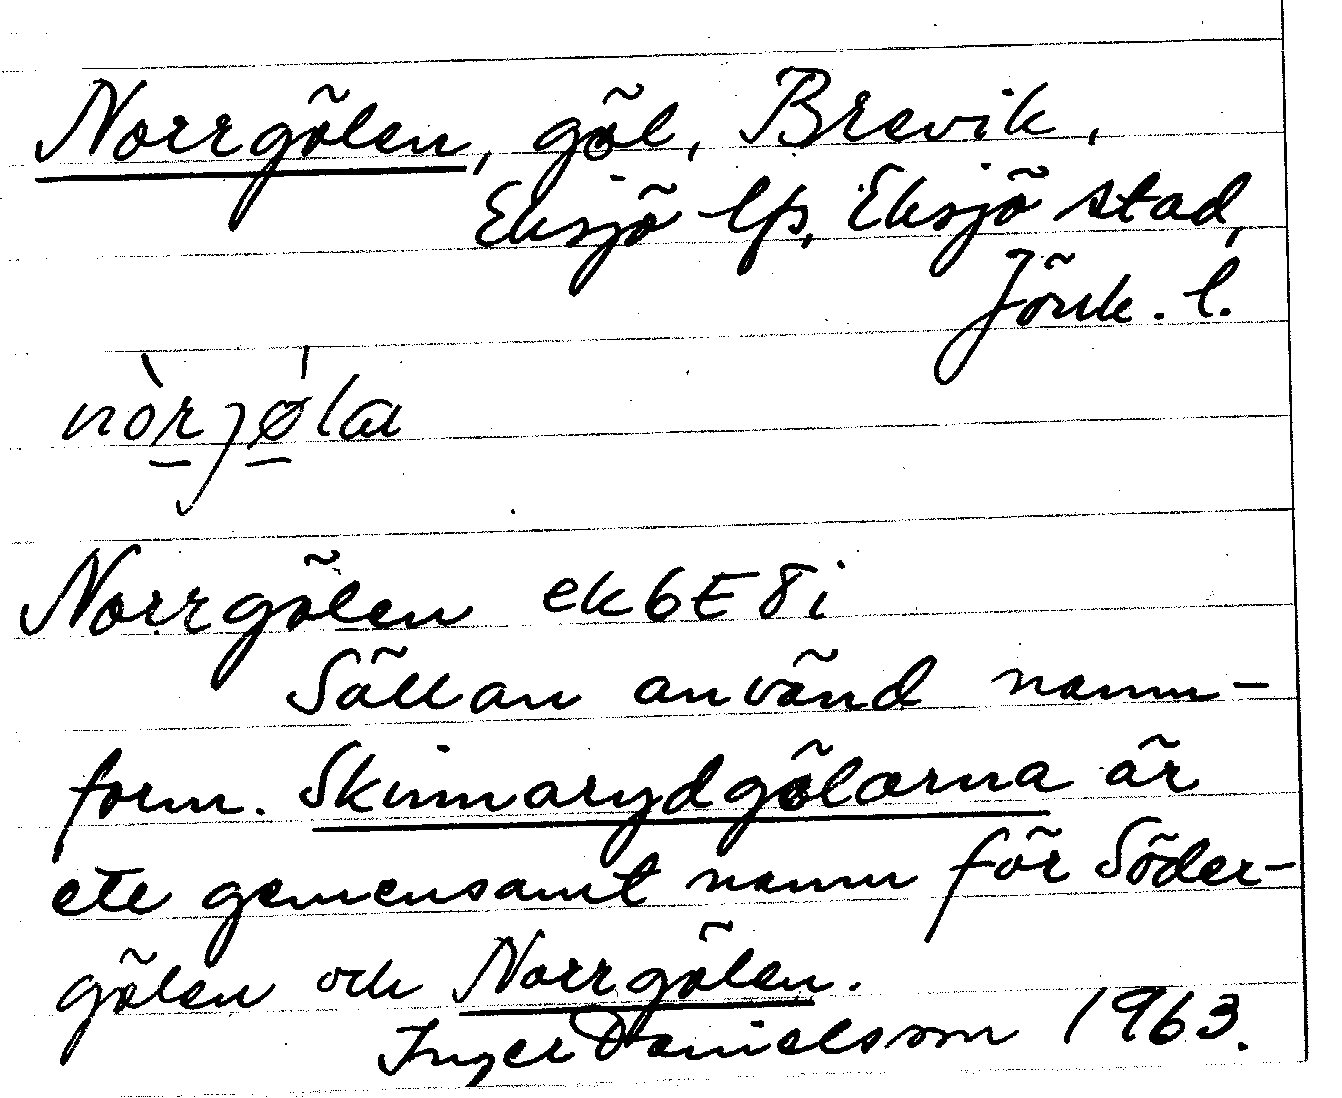 Norrgölen, göl, Brevik,
Eksjö lfs, Eksjö stad,
Jönk. l.
nòrjø̀la
Norrgölen ek6E8i
Sällan använd namn-
form. Skinnarydgölarna är
ett gemensamt namn för Söder-
gölen och Norrgölen.
Inger Danielsson 1963.